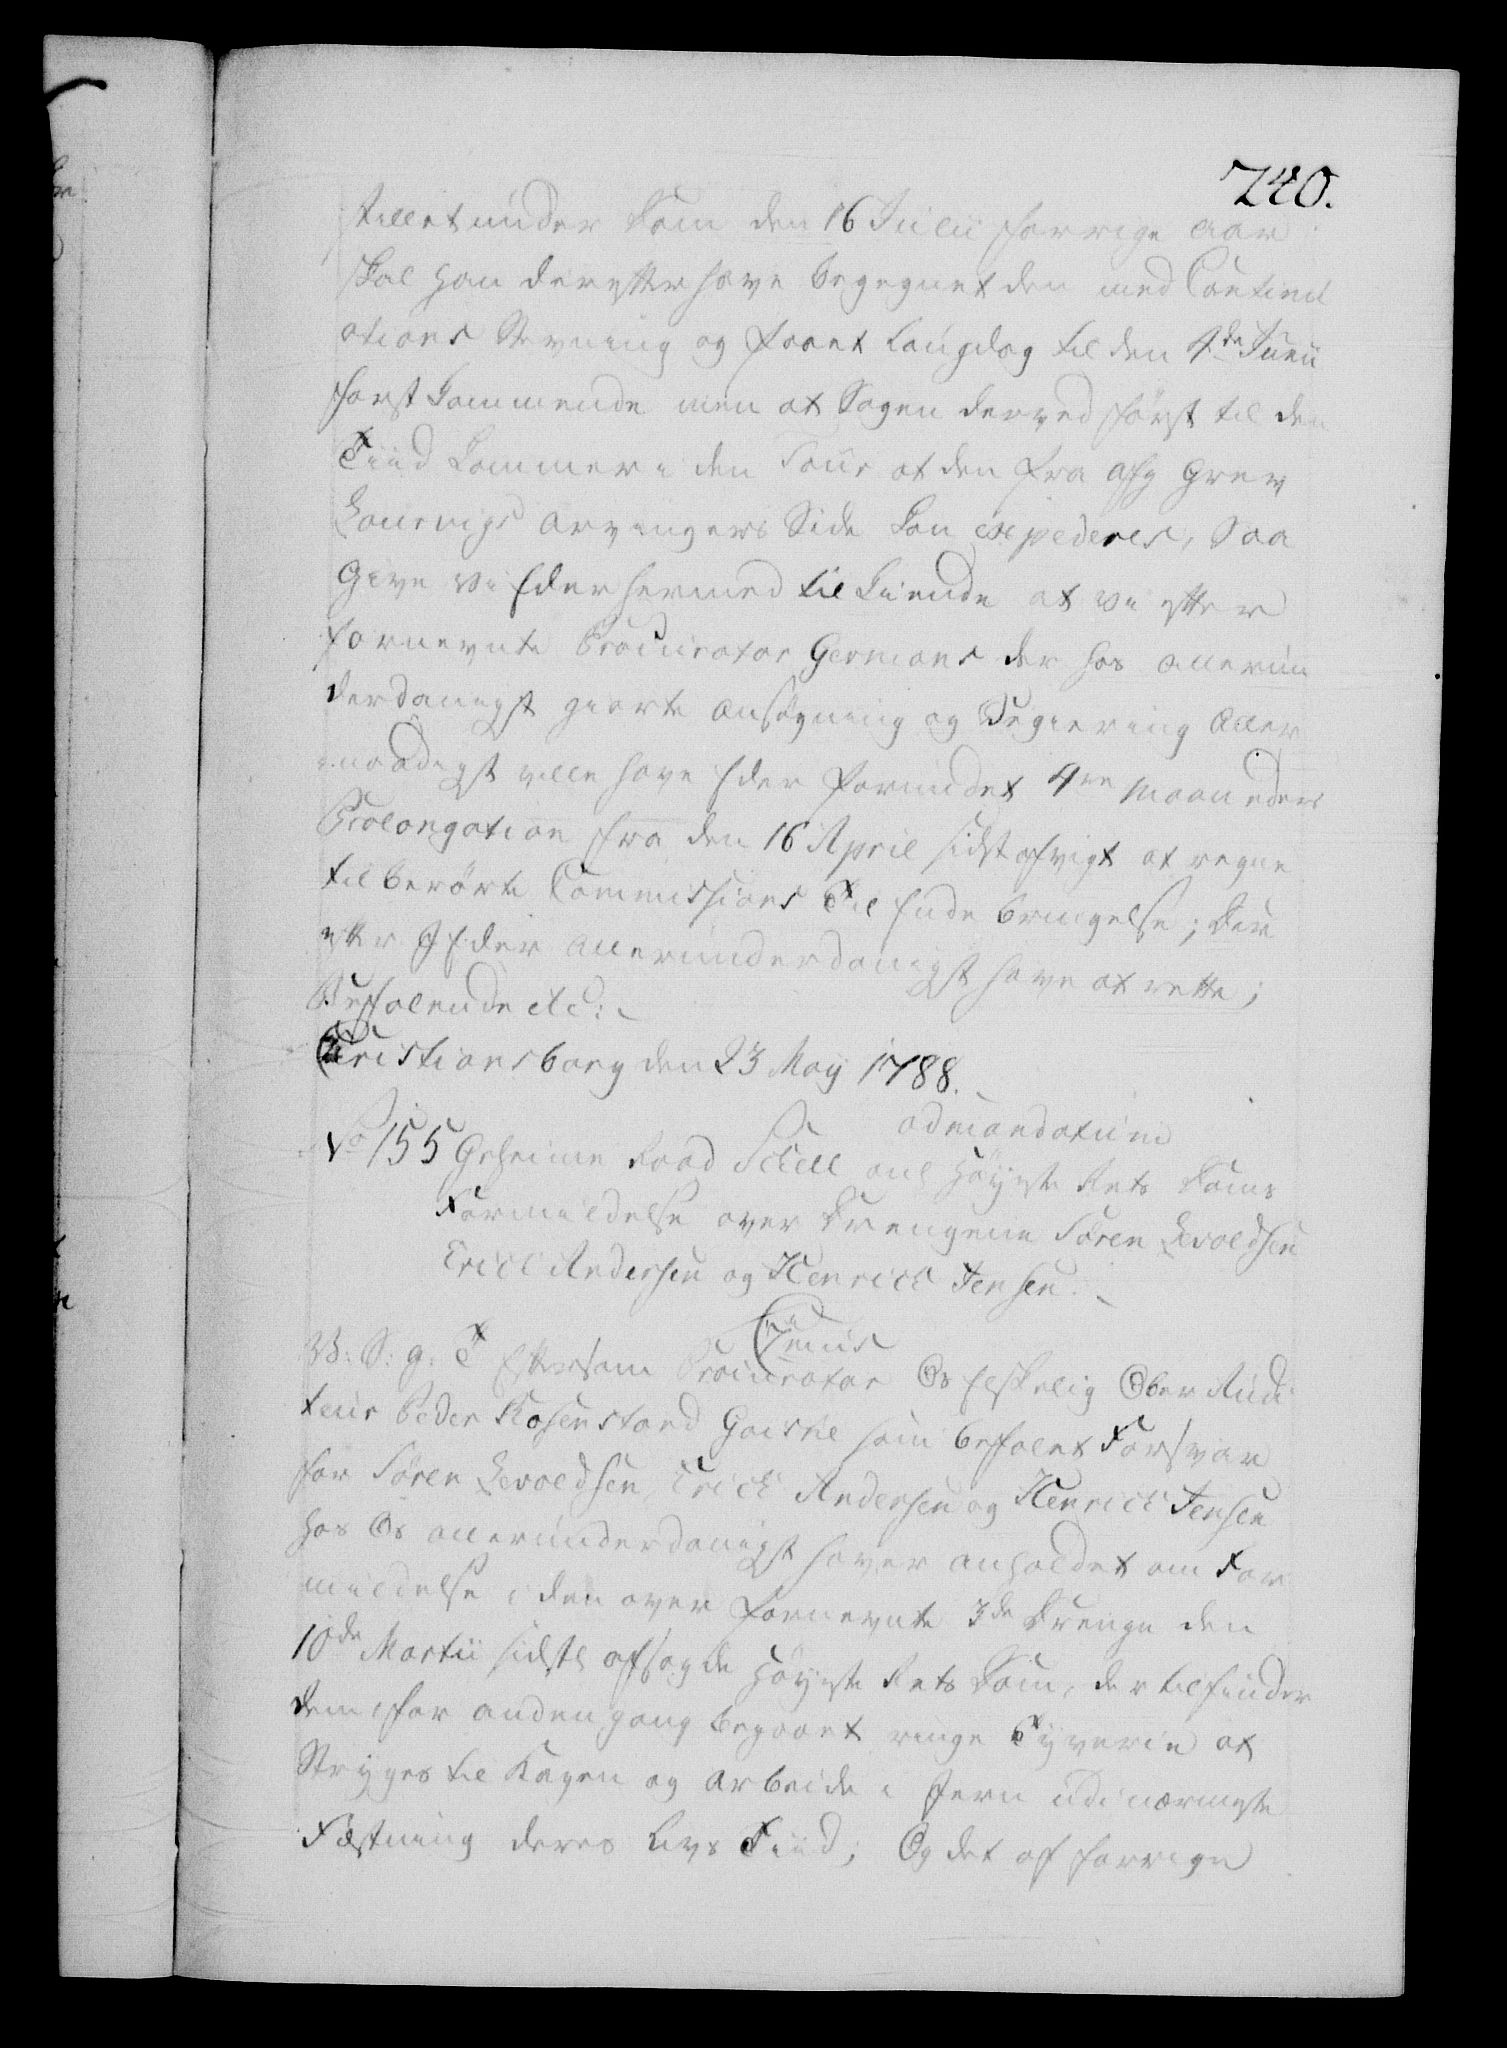 740.
tillet under Dom den 16 Julii forrige Aar
skal han derefter have begegnet den med Continu
ations Stevning og faaet Laugdag til den 4de Junii
først kommende men at Sagen derved først til den
Tiid kommer i den Tour at den fra afg Grev
Laurvigs Arvingers Side kan expederes, Saa
Give Vi Eder hermed tilkiende at Vi efter
fornevnte Procurator Germans der hos allerun
derdanigst giorte Ansøgning og Begiering Aller
naadigst ville have Eder forundet 4re Maaneders
Prolongation fra den 16 April sidst afvigt at regne
til berørte Commissions Til Ende bringelse; Der
efter I Eder Allerunderdanigst have at rette;
Befalende etc:
Christiansborg den 23 Maij 1788.
ad mandatum
No 155 Geheime Raad Scheel anl Høyeste Rets Doms
Formildelse over Drengene Søren Levoldsen
Erich Andersen og Henrich Jensen.
V: S: g: T Eftersom Procurator Os Elskelig Ober Audi
teur Peder Rosenstand Goiske som befalet Forsvar
for Søren Levoldsen, Erich Andersen og Henrich Jensen
hos Os allerunderdanigst haver anholdet om For
mildelse i den over fornevnte 3de Drenge den
10de Martii sidstl afsagde Høyeste Rets Dom, der tilfinder
dem for anden gang begaaet ringe Tyverie at
Stryges til Kagen og Arbeide i Jern udi nærmeste
Fæstning deres Livs Tiid; Og det af forrige